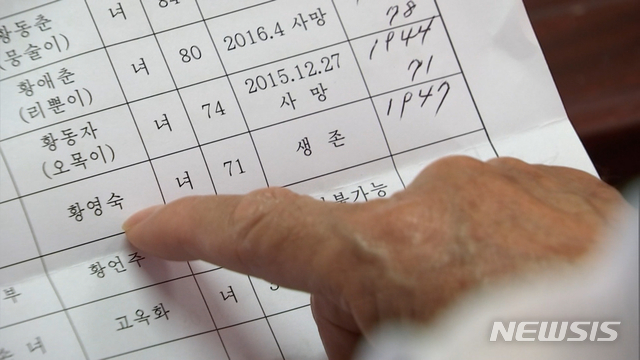 황동춘 녀 84
(몽술이)
78
황애춘 녀 80 2016.4 사망 1944
(리뿐이)
71
황동자 녀 74 2015.12.27 1947
(오목이) 사 망
황영숙 녀 71 생 존
불가능
부 황언주
녀 고옥화 녀
NEWSIS